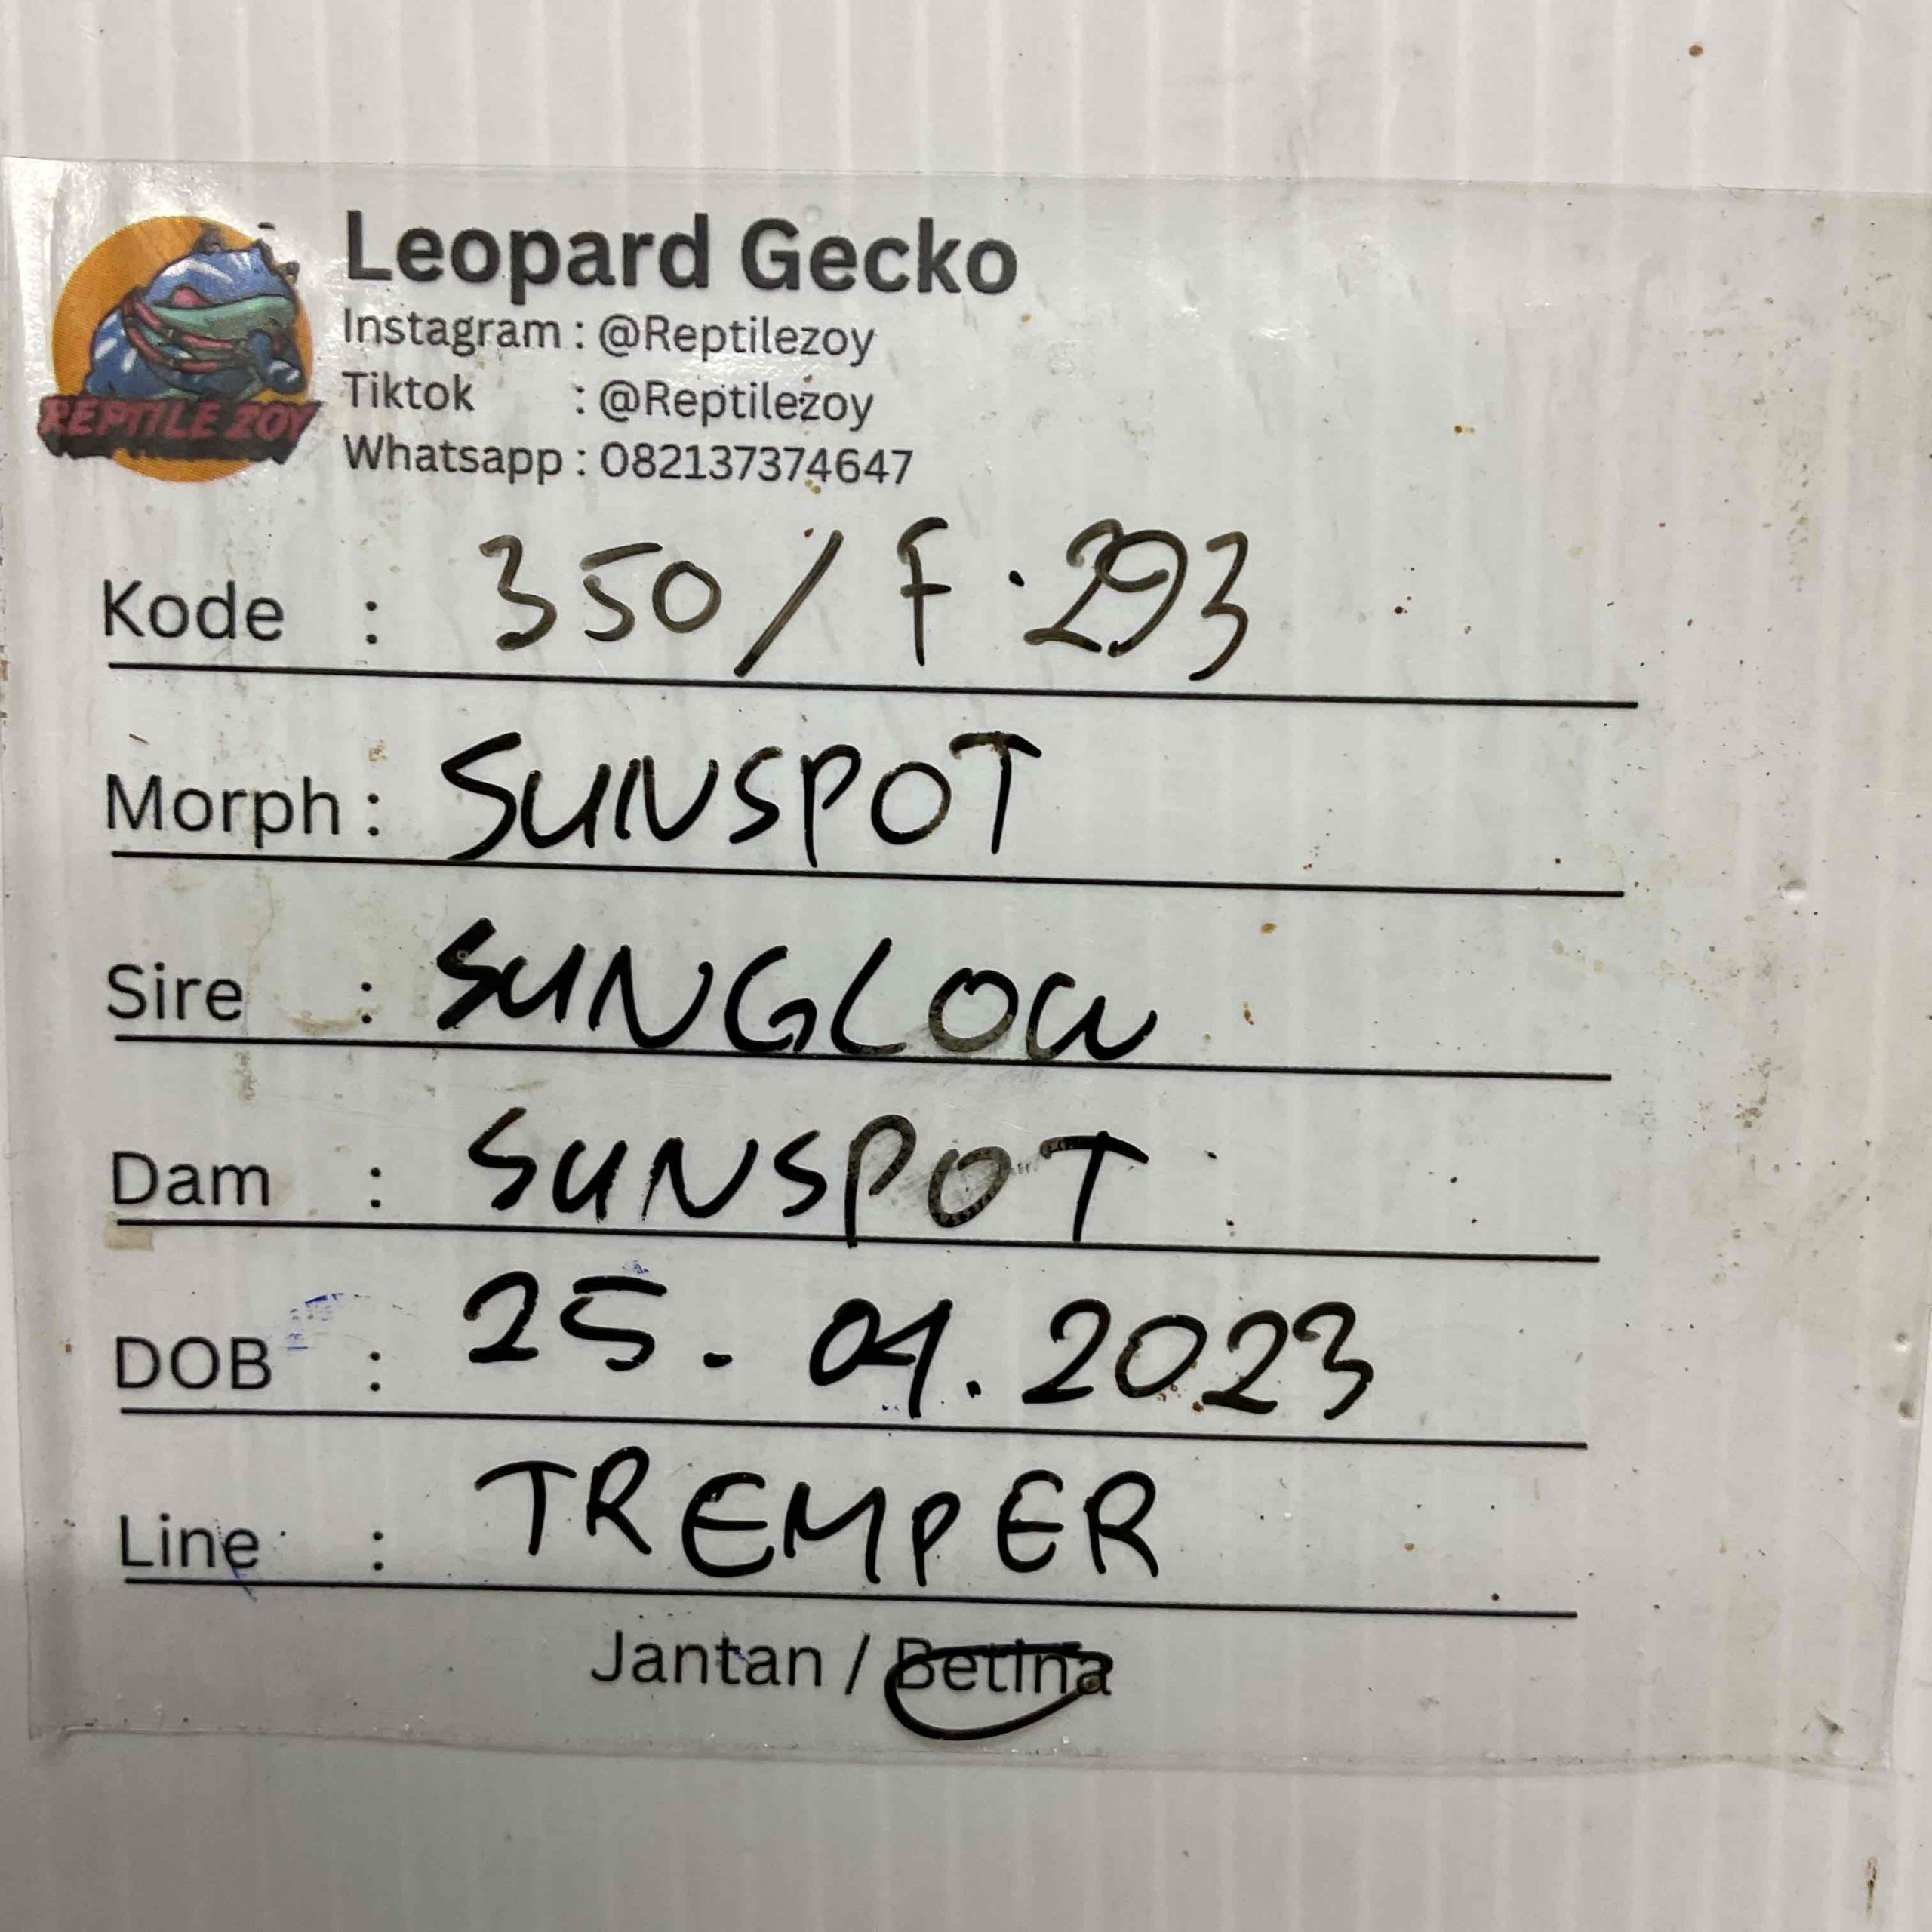 Leopard Gecko
Instagram : @Reptilezoy
Tiktok : @Reptilezoy
REPTILE ZOY
Whatsapp : 082137374647
Kode : 350 / F . 293
Morph : SUNSPOT
Sire : SUNGLOW
Dam : SUNSPOT
DOB : 25 . 04 . 2023
Line : TREMPER
Jantan / Betina